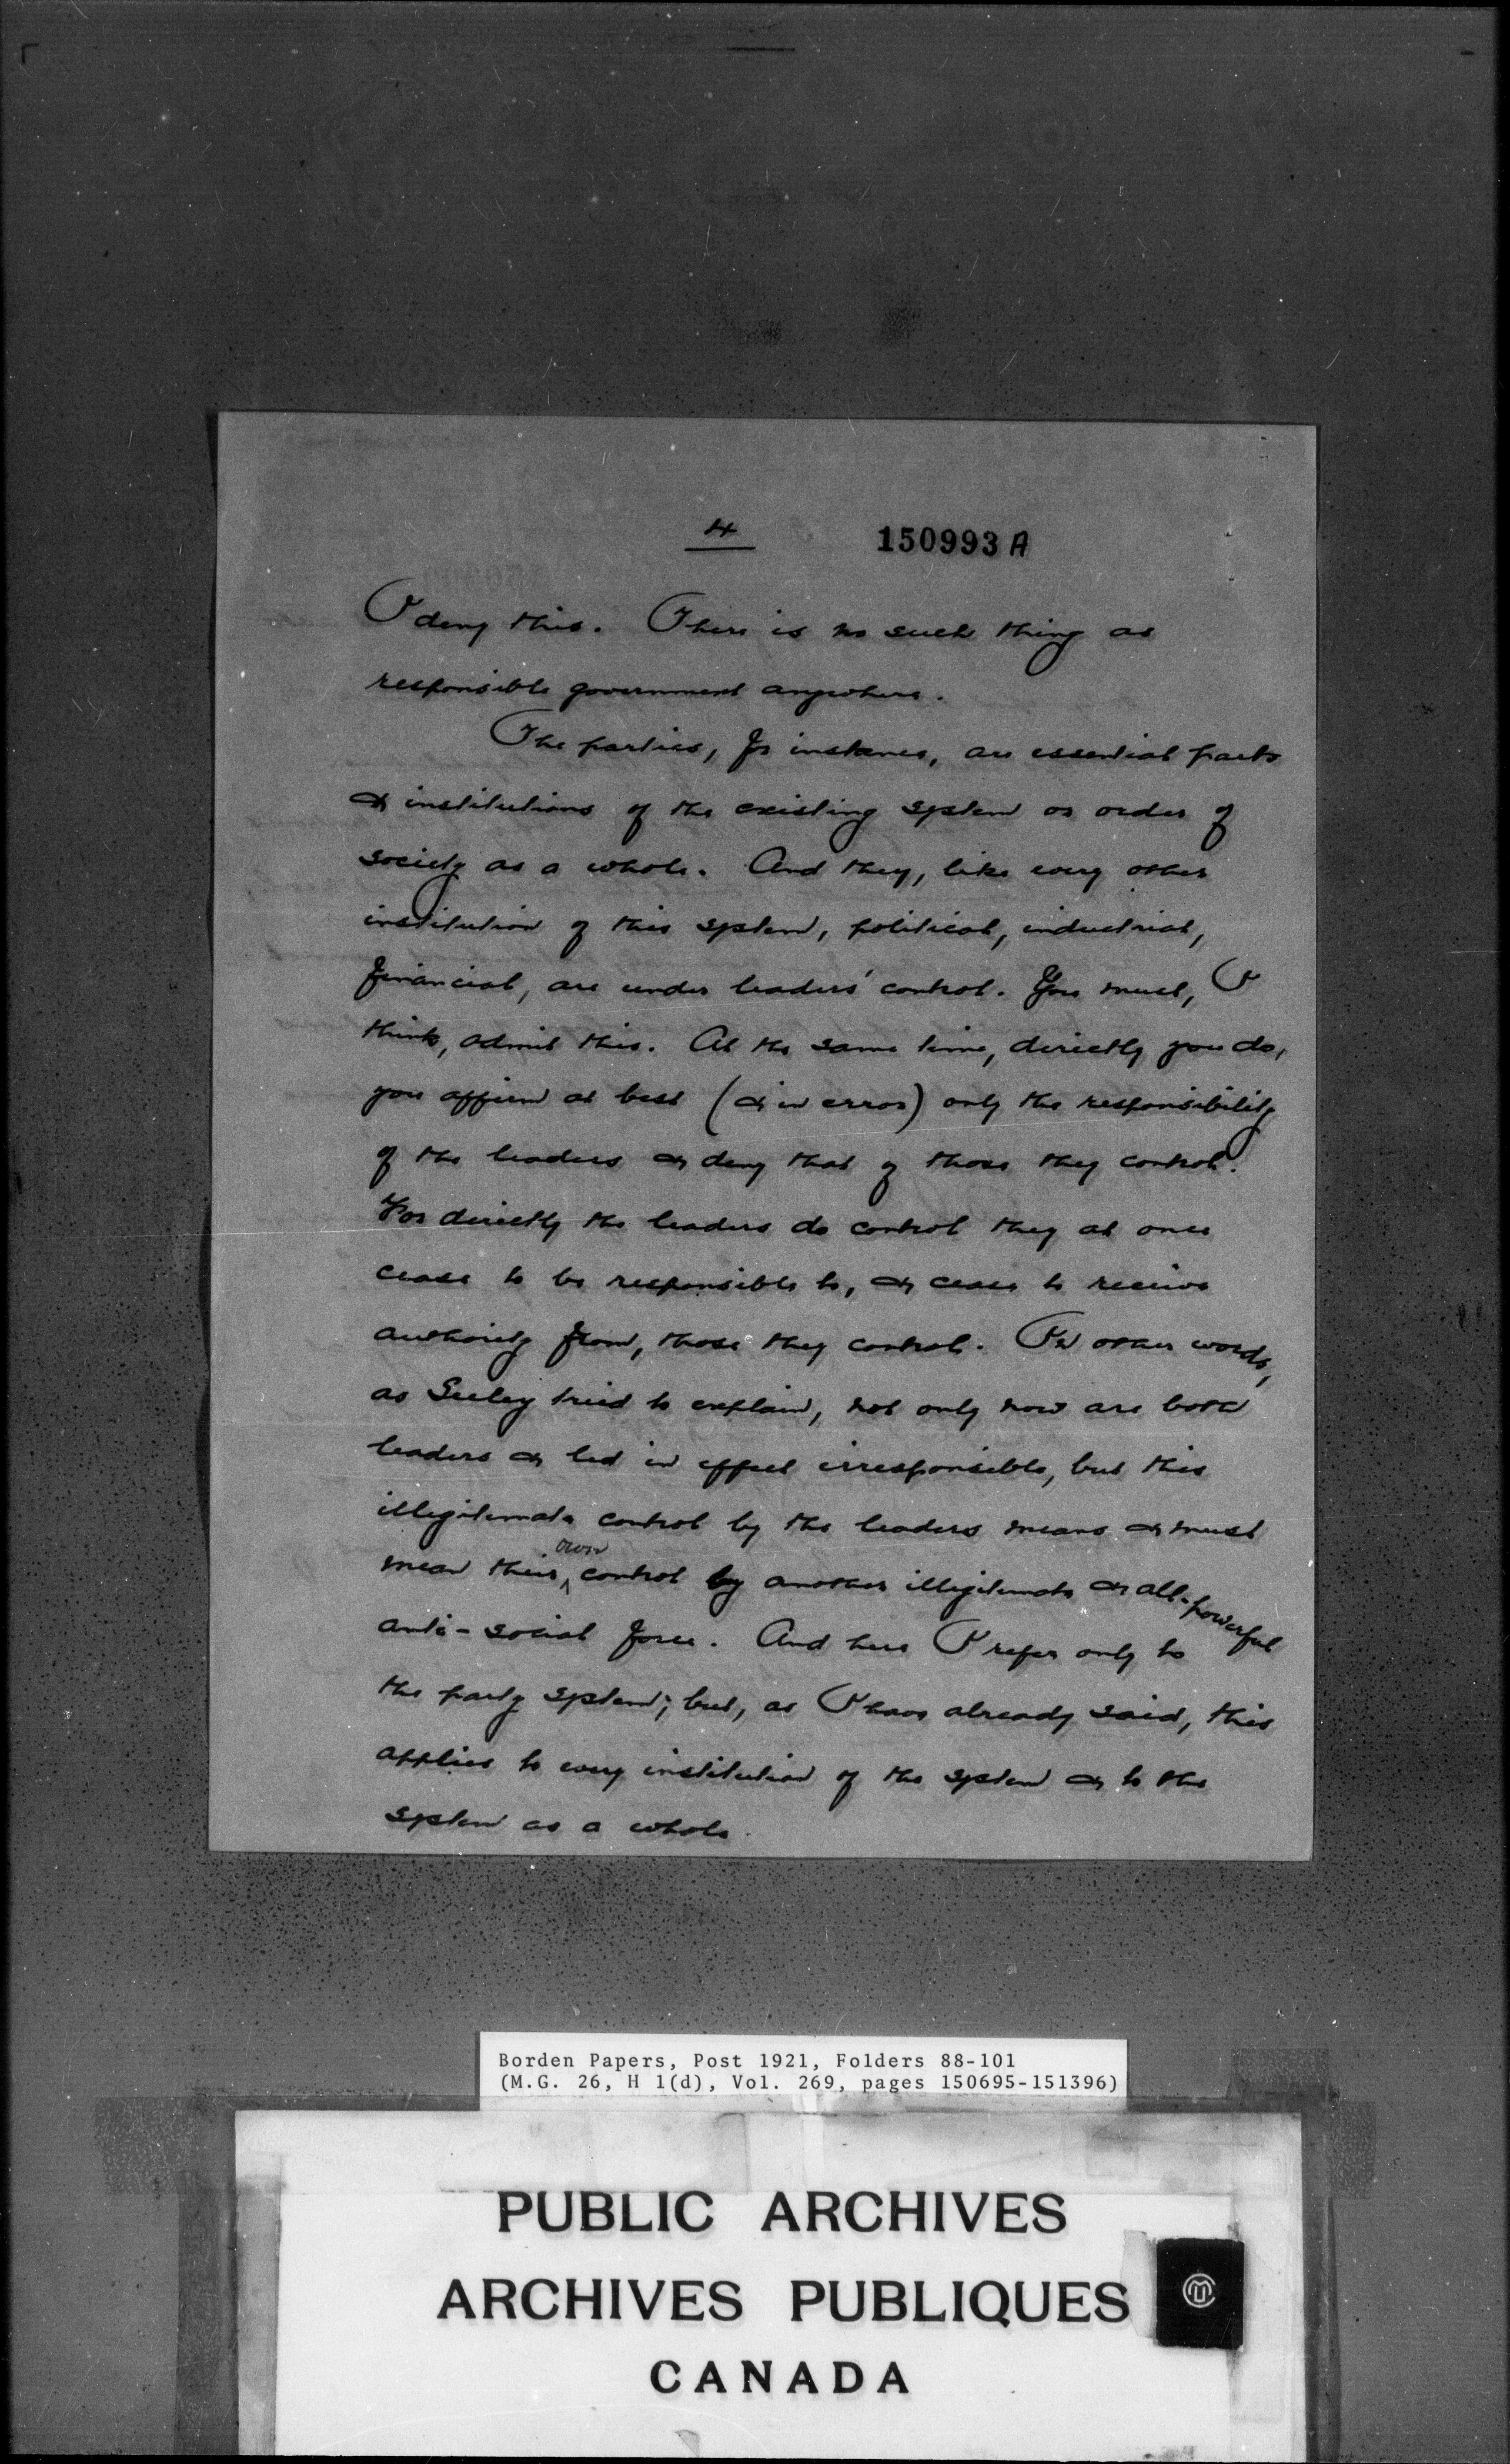 4
150993 A
I deny this. There is no such thing as
responsible government anywhere.
The parties, for instance, are essential parts
& institutions of the existing system or order of
society as a whole. And they, like every other
institution of this system, political, industrial,
financial, are under leaders' control. You must, I
think, admit this. At the same time, directly you do,
you affirm at best (& in error) only the responsibility
of the leaders & deny that of those they control.
For directly the leaders do control they at once
cease to be responsible to, & cease to receive
authority from, those they control. In other words,
as Seeley tried to explain, not only now are both
leaders & led in effect irresponsible, but this
illegitimate control by the leaders means & must
mean their own control by another illegitimate & all-powerful
anti-social force. And here I refer only to
the party system; but, as I have already said, this
applies to every institution of the system & to the
system as a whole.
Borden Papers, Post 1921, Folders 88-101
(M.G. 26, H 1(d), Vol. 269, pages 150695-151396)
PUBLIC ARCHIVES
ARCHIVES PUBLIQUES
CANADA